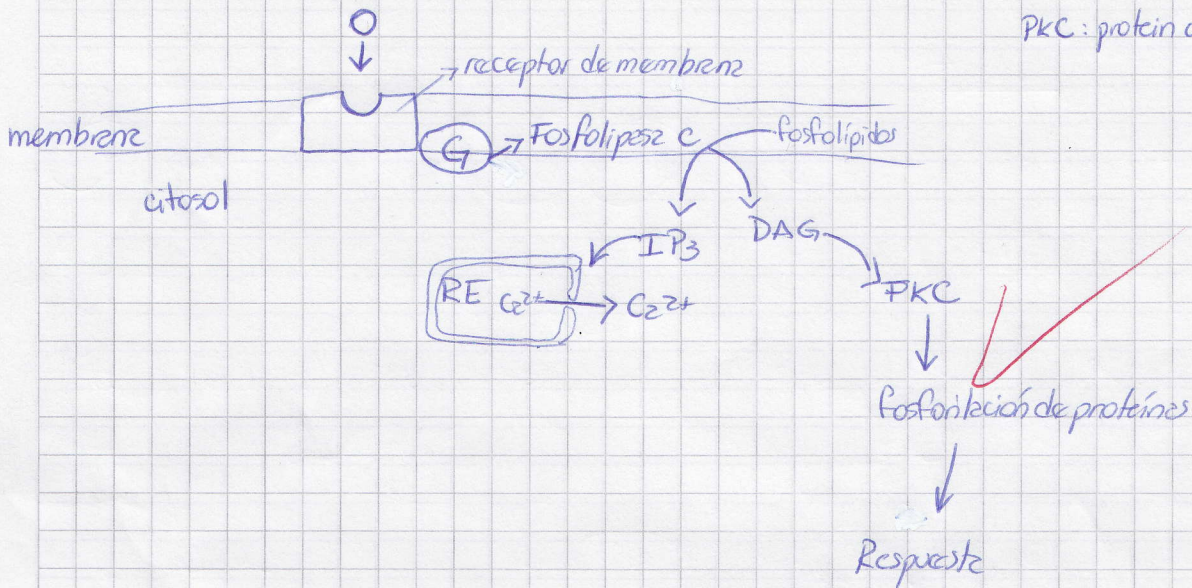 PKC: protein
receptor de membrana
membrana
G
Fosfolipasa C
fosfolípidos
citosol
IP3
DAG
RE Ca2+
Ca2+
PKC
fosforilación de proteínas
Respuesta